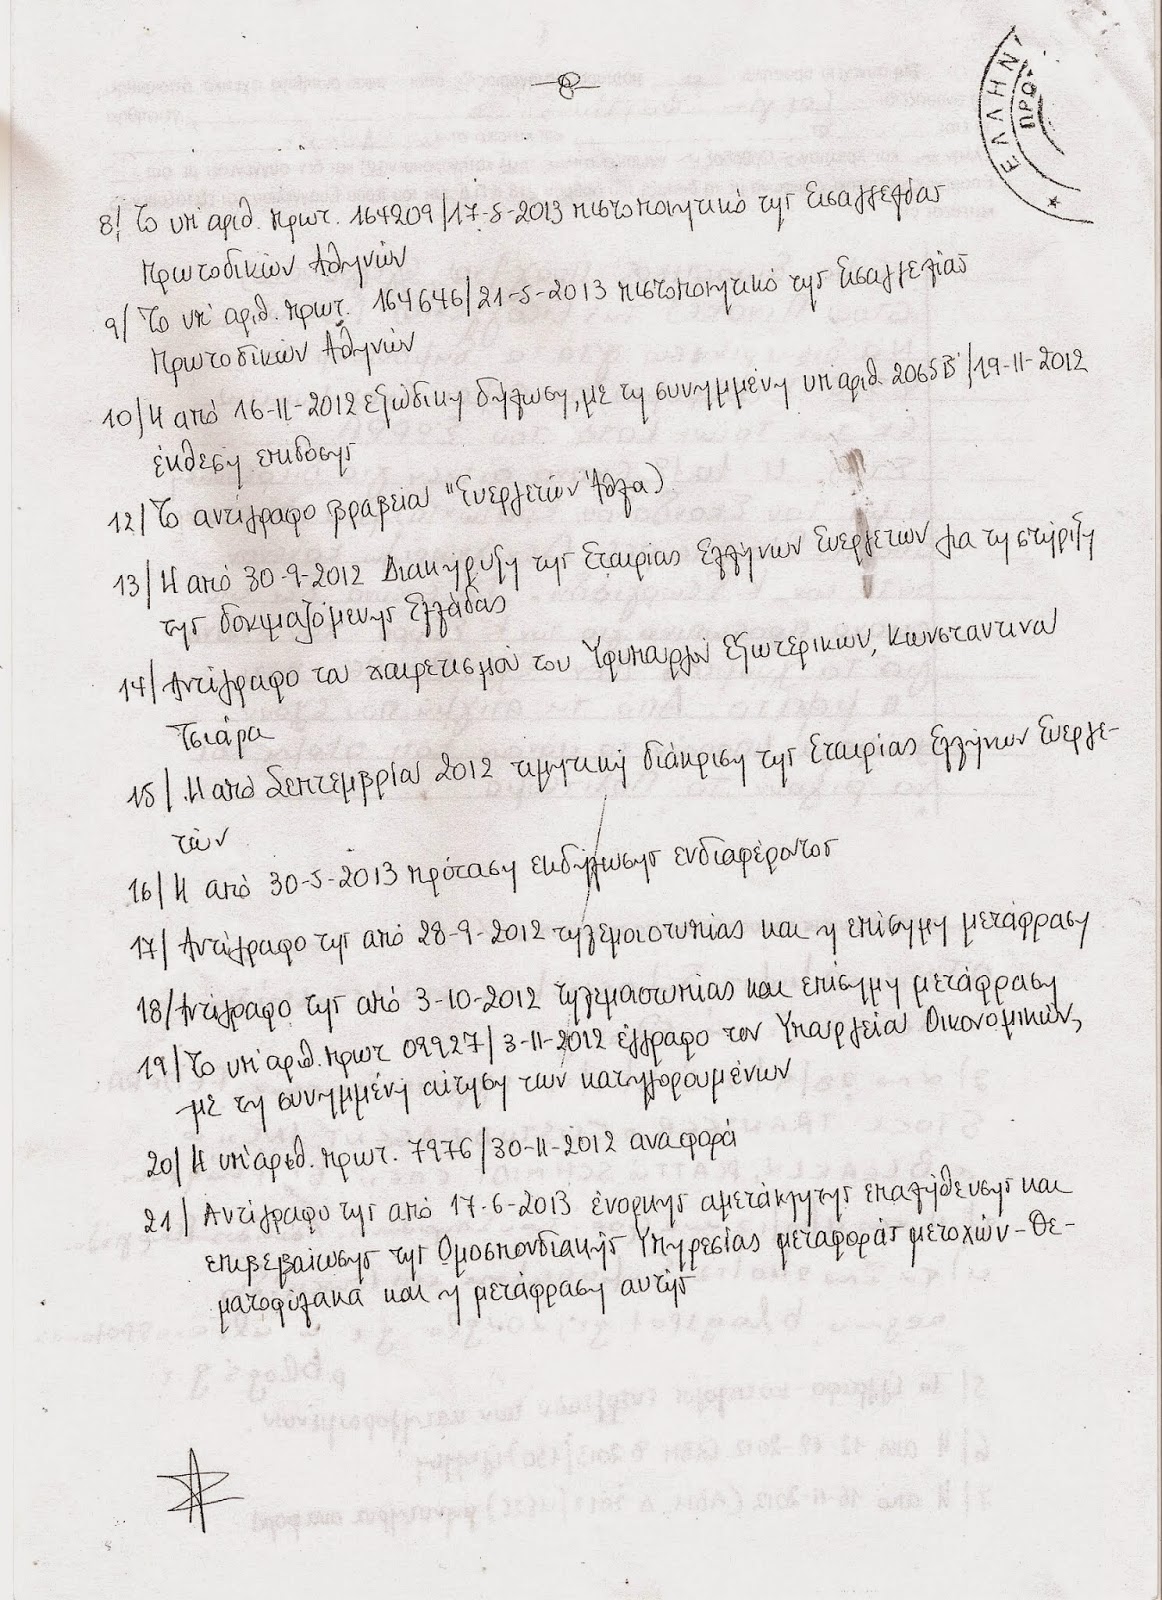 8
ΕΛΛΗΝ
ΠΡΩ
8/ Το υπ' αριθ. πρωτ. 164209/17-5-2013 πιστοποιητικό της Εισαγγελίας
Πρωτοδικών Αθηνών
9/ Το υπ' αριθ. πρωτ. 164646/21-5-2013 πιστοποιητικό της Εισαγγελίας
Πρωτοδικών Αθηνών
10/ Η από 16-11-2012 εξώδικη δήλωση, με τη συνημμένη υπ' αριθ 2065Β'/19-11-2012
έκθεση επιδόσης
12/ Το αντίγραφο βραβείου "Ευεργετών Άθλα)
13/ Η από 30-9-2012 Διακήρυξη της Εταιρίας Ελλήνων Ευεργετών για τη στήριξη
της δοκιμαζόμενης Ελλάδας
14/ Αντίγραφο του χαιρετισμού του Υφυπουργού Εξωτερικών, Κωνσταντίνου
Τσιάρα
15/ Η από Σεπτεμβρίου 2012 τιμητική διάκριση της Εταιρίας Ελλήνων Ευεργε-
τών
16/ Η από 30-5-2013 πρόταση εκδήλωσης ενδιαφέροντος
17/ Αντίγραφο της από 28-9-2012 τηλεμοιοτυπίας και η επίσημη μετάφραση
18/ Αντίγραφο της από 3-10-2012 τηλεμοιοτυπίας και επίσημη μετάφραση
19/ Το υπ' αριθ. πρωτ 09927/3-11-2012 έγγραφο του Υπουργείου Οικονομικών,
με τη συνημμένη αίτηση των κατηγορουμένων
20/ Η υπ' αριθ. πρωτ. 7976/30-11-2012 αναφορά
21/ Αντίγραφο της από 17-6-2013 ένορκης αμετάκλητης επαλήθευσης και
επιβεβαίωσης της Ομοσπονδιακής Υπηρεσίας μεταφοράς μετοχών-Θε-
ματοφύλακα και η μετάφραση αυτής